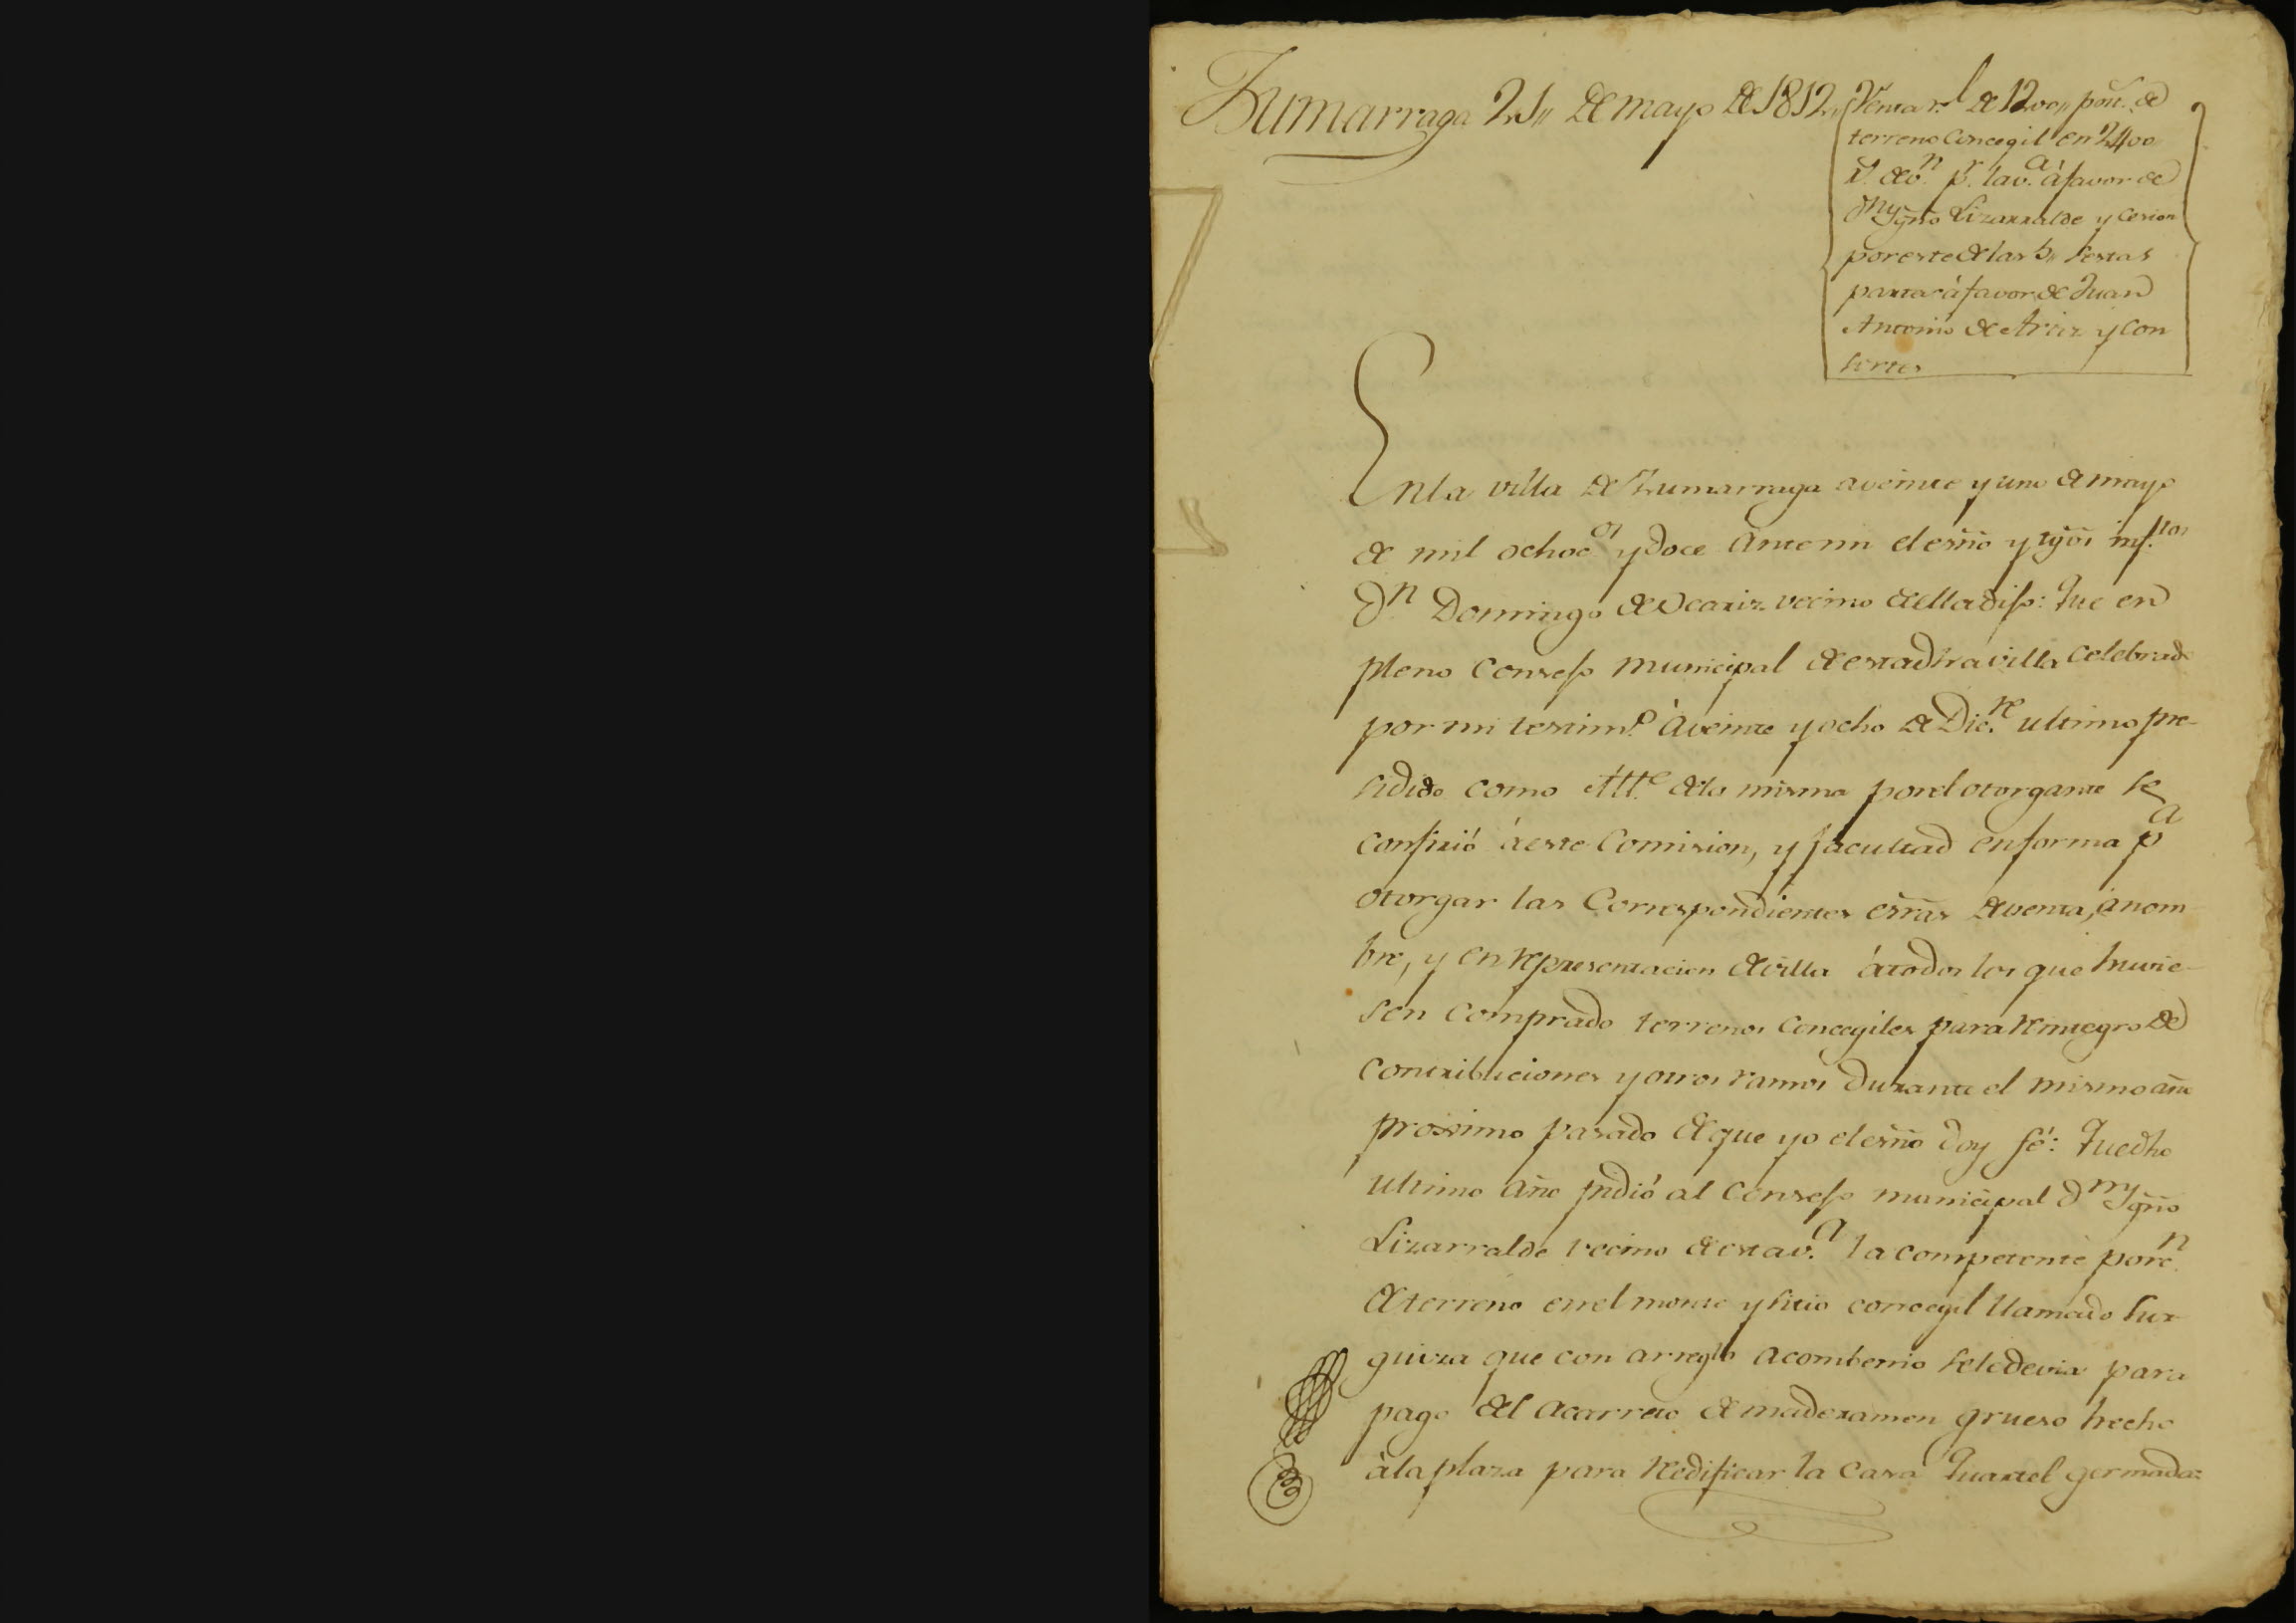 Zumarraga 21,, de mayo de 1812,,
Venta r.l de 1200,, pon.s de
terreno Concegil en 2400,,
r.s de v.n p.r la v.a á favor de
D.n Yg.no Lizarralde y cesion
por este de las 5,, sestas
partes á favor de Juan
Antonio de Ariz y con
sortes
En la villa de Zumarraga a veinte y uno de mayo
de mil ochoc.os y doce ante mi el esñо y tgõs inf.tos
D.n Domingo de Ocariz vecino de ella dijo: Que en
pleno Consejo municipal de esta dha villa celebrado
por mi testim.o á veinte y ocho de Dic.re ultimo pre-
sidido como Alt.e de la misma por el otorgante se
confirió á este Comision, y facultad en forma p.a
otorgar las Correspondientes esrãs de venta, á nom
bre, y en representacion de villa á todos los que huvie-
sen comprado terrenos concegiles para reintegro de
contribuciones y otros ramos durante el mismo año
prossimo pasado de que yo el esñо doy fé: Que dho
ultimo año pidió al Consejo municipal D.n Ygño
Lizarralde vecino de esta v.a la competente porc.n
de terreno en el monte y sitio concegil llamado
que con arreglo a combenio se le devia para
pago del acarreto de maderamen grueso hecho
à la plaza para redificar la casa Quartel